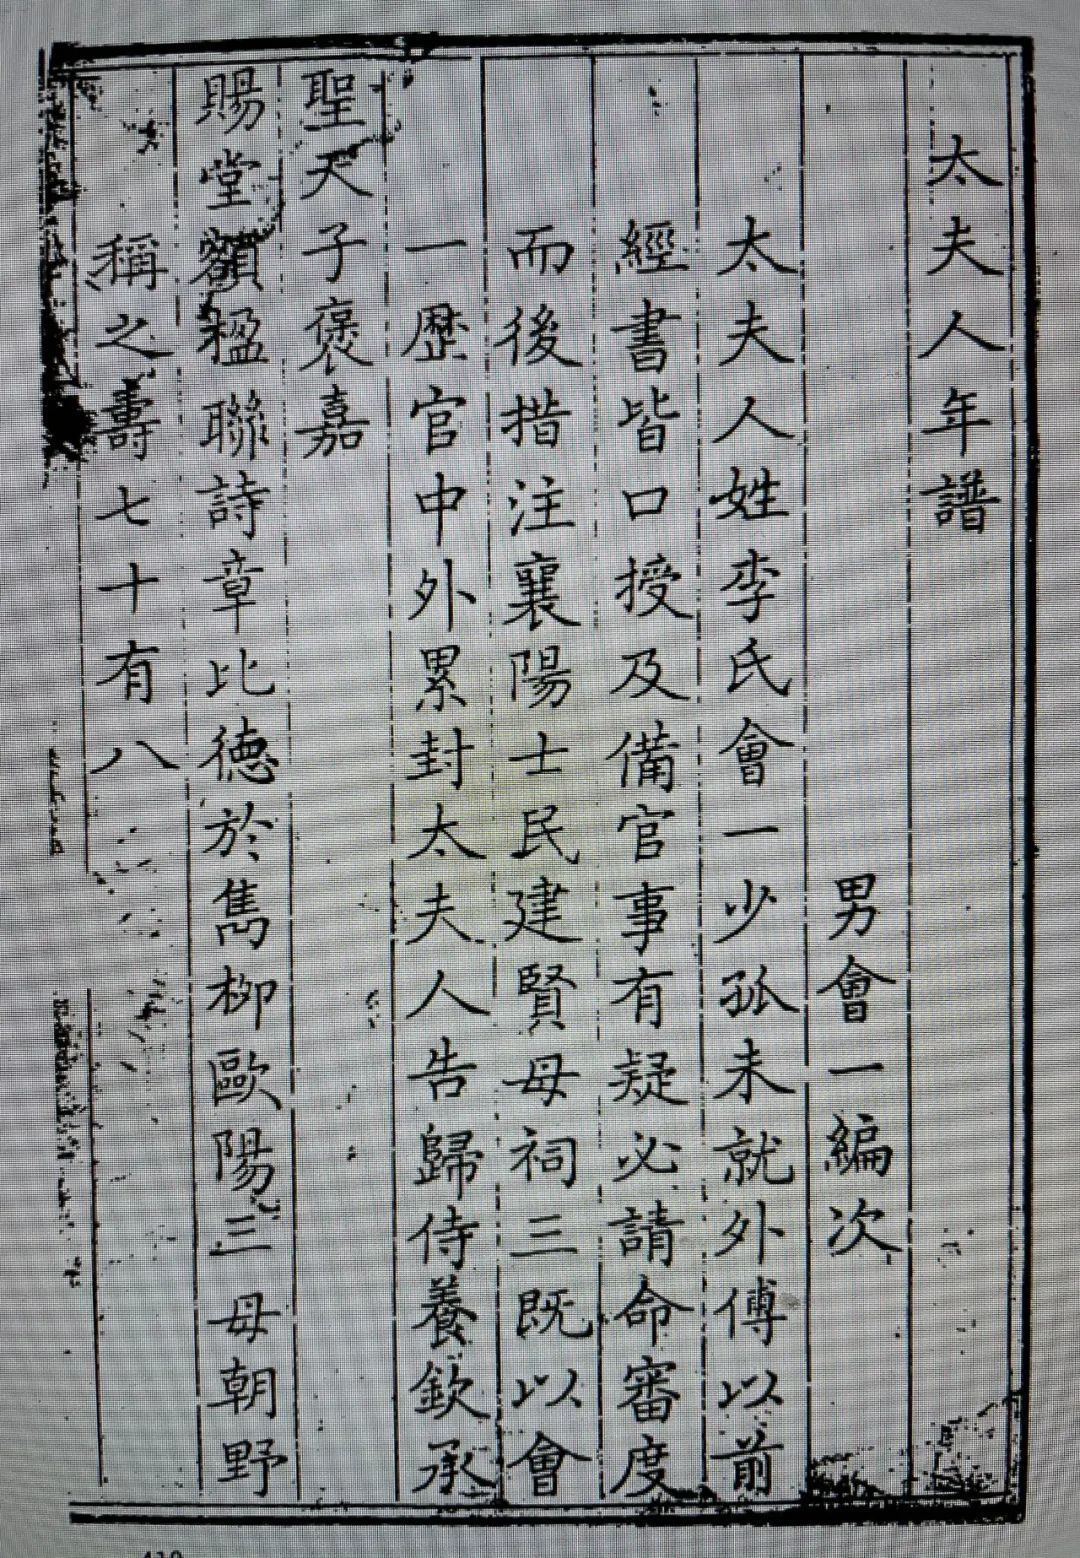 太夫人年譜
男會一編次
太夫人姓李氏會一少孤未就外傅以前
經書皆口授及備官事有疑必請命審度
而後措注襄陽士民建賢母祠三既以會
一歷官中外累封太夫人告歸侍養欽承
聖天子褒嘉
賜堂額楹聯詩章比德於雋柳歐陽三母朝野
稱之壽七十有八